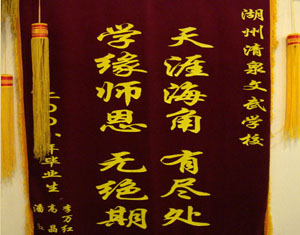 湖州清泉文武学校
天涯海角 有尽处
学缘师恩 无绝期
二00八年毕业生
李万红
高晶
潘